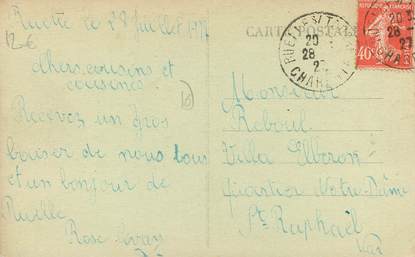 Ruelle le 28 Juillet 1927
12 €
chers cousins et
cousines.
Recevez un gros
baiser de nous tous
et un bonjour de
Ruelle
Rose
CARTE POSTALE
20
28
27
CHARENTE
40c
Monsieur
Reboul
Villa Elberon
quartier Notre-Dame
St Raphaël
Var